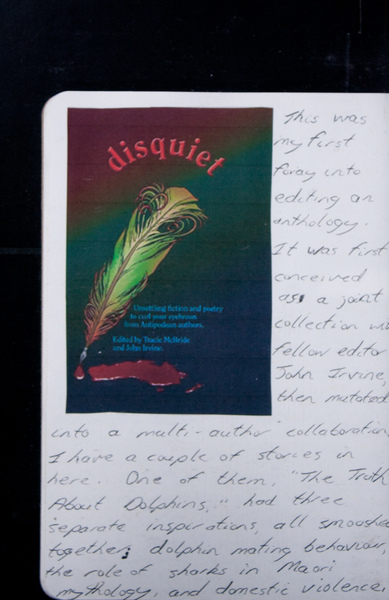 disquiet
Unsettling fiction and poetry
to curl your eyebrows
from Antipodean authors.
Edited by Tracie McBride
and John Irvine.
This was
my first
foray into
editing an
anthology.
It was first
conceived
as a joint
collection
fellow editor
John Irvine,
then mutated
into a multi-author collaboration
I have a couple of stories in
here. One of them, "The Truth
About Dolphins," had three
separate inspirations, all smooshed
together; dolphin mating behaviour,
the role of sharks in Maori
mythology, and domestic violence.